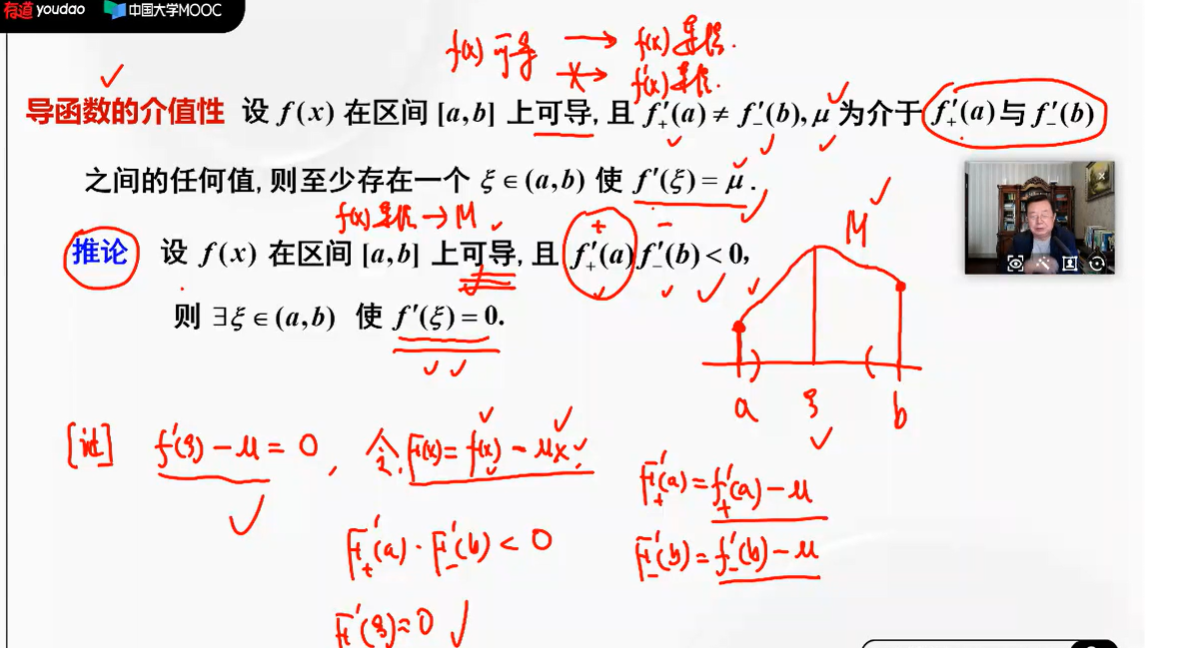 有道 youdao 中国大学MOOC
f(x) 可导 → f(x) 连续.
↛ f'(x) 连续.
导函数的介值性 设 f(x) 在区间 [a,b] 上可导, 且 f'₊(a) ≠ f'₋(b), μ 为介于 f'₊(a) 与 f'₋(b)
之间的任何值, 则至少存在一个 ξ ∈ (a,b) 使 f'(ξ) = μ .
f(x) 连续 → M
+ −
推论 设 f(x) 在区间 [a,b] 上可导, 且 f'₊(a) f'₋(b) < 0,
M
则 ∃ξ ∈ (a,b) 使 f'(ξ) = 0.
a ξ b
[证] f'(ξ) − μ = 0 , 令 F(x) = f(x) − μx,
F'₊(a) = f'₊(a) − μ
F'₊(a) · F'₋(b) < 0
F'₋(b) = f'₋(b) − μ
F'(ξ) = 0